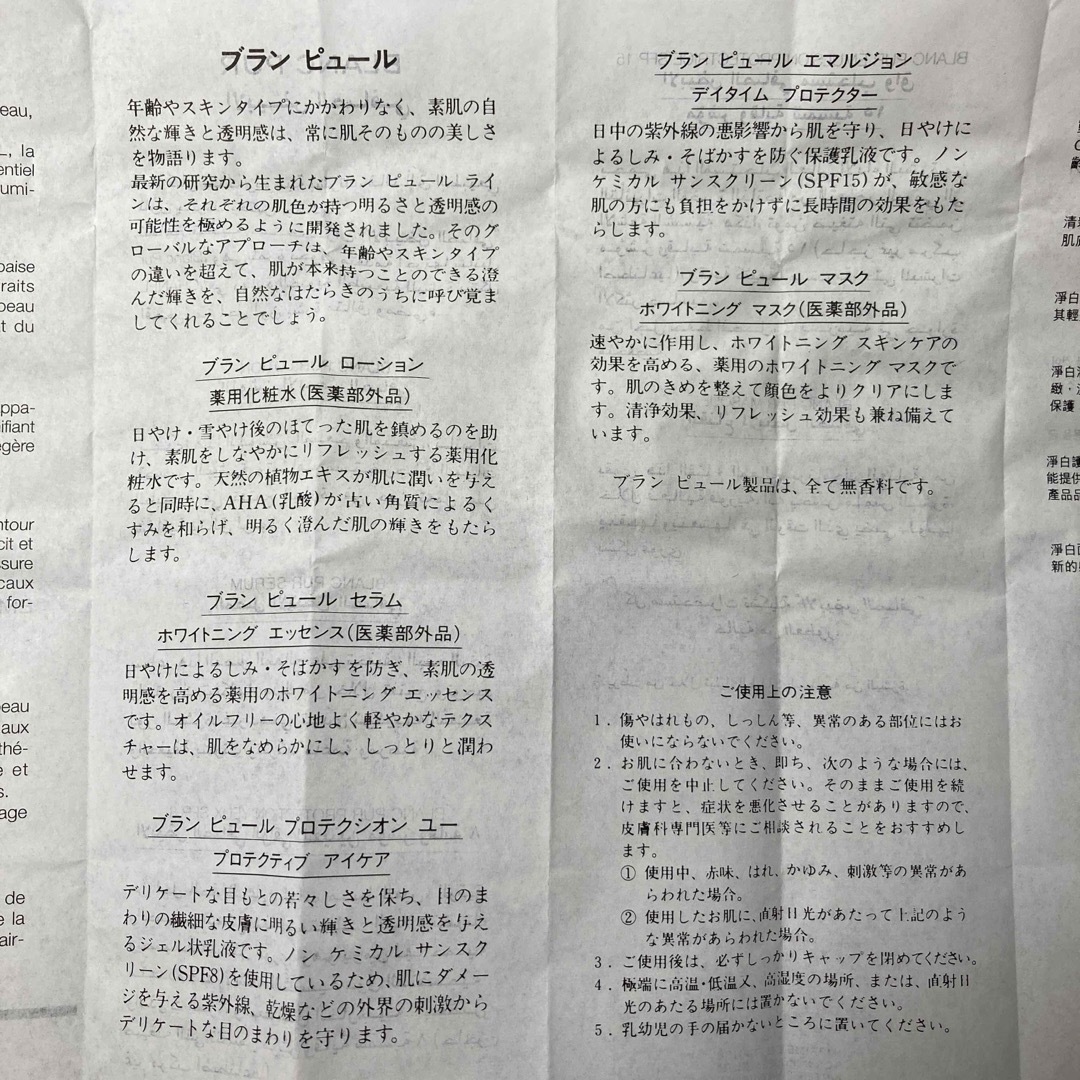 ブラン ピュール
年齢やスキンタイプにかかわりなく、素肌の自
然な輝きと透明感は、常に肌そのものの美しさ
を物語ります。
最新の研究から生まれたブラン ピュール ライ
ンは、それぞれの肌色が持つ明るさと透明感の
可能性を極めるように開発されました。そのグ
ローバルなアプローチは、年齢やスキンタイプ
の違いを超えて、肌が本来持つことのできる澄
んだ輝きを、自然なはたらきのうちに呼び覚ま
してくれることでしょう。
ブラン ピュール ローション
薬用化粧水(医薬部外品)
日やけ・雪やけ後のほてった肌を鎮めるのを助
け、素肌をしなやかにリフレッシュする薬用化
粧水です。天然の植物エキスが肌に潤いを与え
ると同時に、AHA(乳酸)が古い角質によるく
すみを和らげ、明るく澄んだ肌の輝きをもたら
します。
ブラン ピュール セラム
ホワイトニング エッセンス(医薬部外品)
日やけによるしみ・そばかすを防ぎ、素肌の透
明感を高める薬用のホワイトニング エッセンス
です。オイルフリーの心地よく軽やかなテクス
チャーは、肌をなめらかにし、しっとりと潤わ
せます。
ブラン ピュール プロテクシオン ユー
プロテクティブ アイケア
デリケートな目もとの若々しさを保ち、目のま
わりの繊細な皮膚に明るい輝きと透明感を与え
るジェル状乳液です。ノン ケミカル サンスク
リーン(SPF8)を使用しているため、肌にダメー
ジを与える紫外線、乾燥などの外界の刺激から
デリケートな目のまわりを守ります。
ブラン ピュール エマルジョン
デイタイム プロテクター
日中の紫外線の悪影響から肌を守り、日やけに
よるしみ・そばかすを防ぐ保護乳液です。ノン
ケミカル サンスクリーン(SPF15)が、敏感な
肌の方にも負担をかけずに長時間の効果をもた
らします。
ブラン ピュール マスク
ホワイトニング マスク(医薬部外品)
速やかに作用し、ホワイトニング スキンケアの
効果を高める、薬用のホワイトニング マスクで
す。肌のきめを整えて顔色をよりクリアにしま
す。清浄効果、リフレッシュ効果も兼ね備えて
います。
ブラン ピュール製品は、全て無香料です。
ご使用上の注意
1. 傷やはれもの、しっしん等、異常のある部位にはお
使いにならないでください。
2. お肌に合わないとき、即ち、次のような場合には、
ご使用を中止してください。そのままご使用を続
けますと、症状を悪化させることがありますので、
皮膚科専門医等にご相談されることをおすすめし
ます。
① 使用中、赤味、はれ、かゆみ、刺激等の異常があ
らわれた場合。
② 使用したお肌に、直射日光があたって上記のよう
な異常があらわれた場合。
3. ご使用後は、必ずしっかりキャップを閉めてください。
4. 極端に高温・低温又、高湿度の場所、または、直射日
光のあたる場所には置かないでください。
5. 乳幼児の手の届かないところに置いてください。